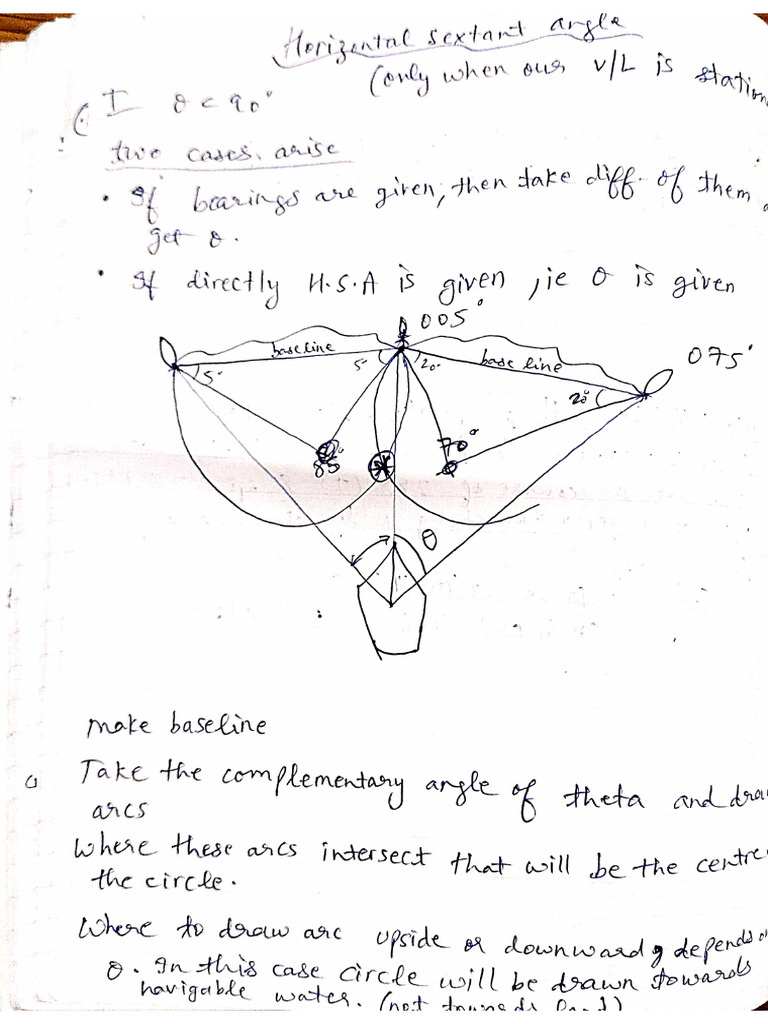 Horizental sextant angle
(only when our V/L is station
I θ < 90°
two cases arise
• If bearings are given, then take diff. of them
get θ.
• If directly H.S.A is given, ie θ is given
005°
baseline
base line
075°
5°
5°
20°
20°
85°
70°
θ
make baseline
Take the complementary angle of theta and draw
arcs
Where these arcs intersect that will be the centre
the circle.
Where to draw arc upside or downward depends
θ. In this case circle will be drawn towards
navigable water. (not towards land)